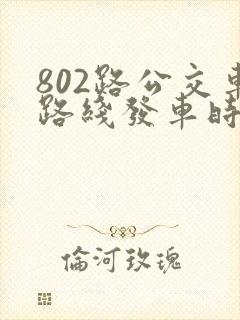 802路公交車
路綫發車時
倫河玫瑰